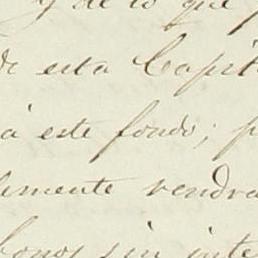 y de lo que p
de esta Capit
á este fondo; p
lemente vendra
bonos sin inte